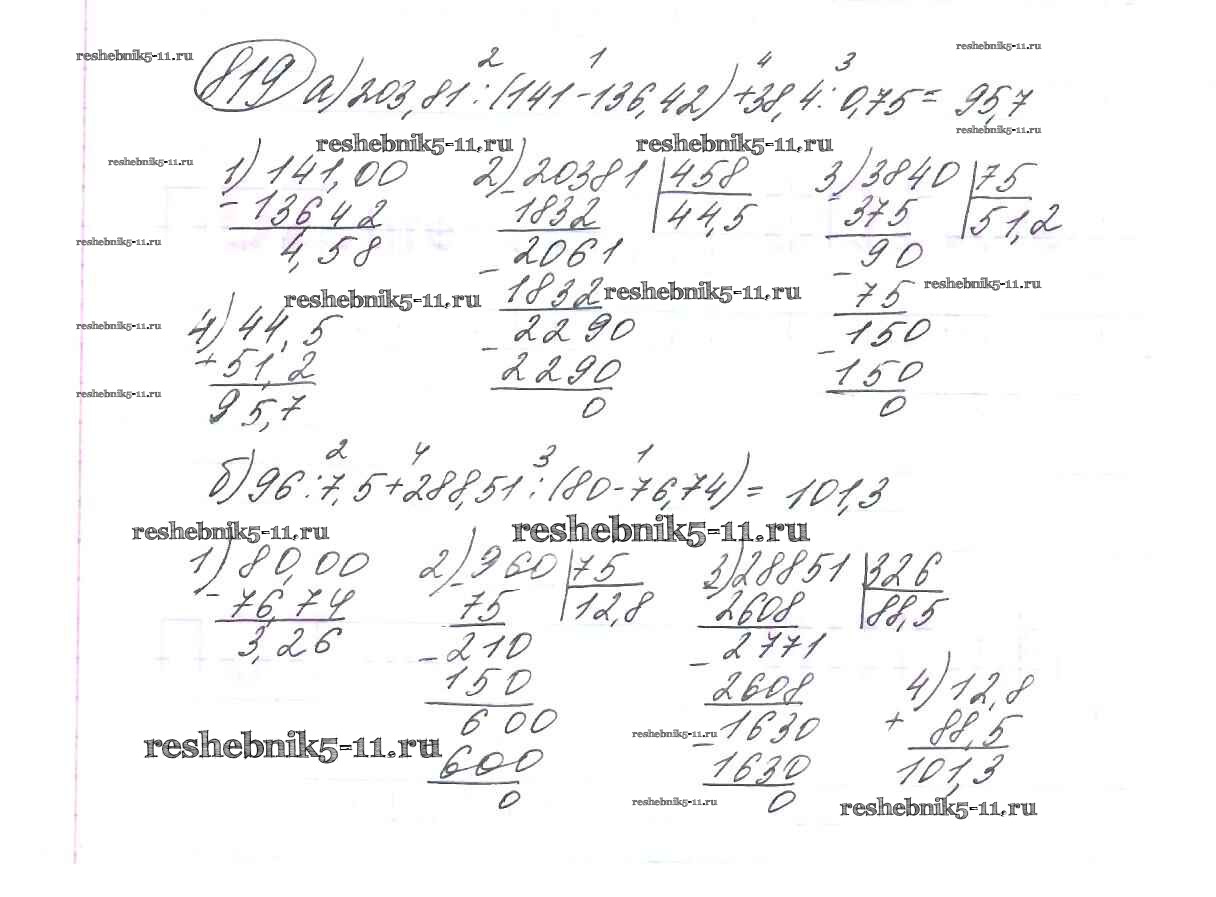 reshebnik5-11.ru
reshebnik5-11.ru
2 1 4 3
819 а) 203,81 : (141 - 136,42) + 38,4 : 0,75 = 95,7
reshebnik5-11.ru
reshebnik5-11.ru reshebnik5-11.ru
reshebnik5-11.ru
1) 141,00 2) - 20381 | 458 3) 3840 | 75
- 136,42 1832 | 44,5 - 375 | 51,2
reshebnik5-11.ru
4,58 - 2061 - 90
reshebnik5-11.ru 1832 reshebnik5-11.ru 75 reshebnik5-11.ru
reshebnik5-11.ru
4) 44,5 - 2290 - 150
+ 51,2 2290 150
reshebnik5-11.ru
95,7 0 0
2 4 3 1
б) 96 : 7,5 + 288,51 : (80 - 76,74) = 101,3
reshebnik5-11.ru reshebnik5-11.ru
1) 80,00 2) - 960 | 75 3) 28851 | 326
- 76,74 75 | 12,8 2608 | 88,5
3,26 - 210 - 2771
150 2608 4) 12,8
600 reshebnik5-11.ru - 1630 + 88,5
reshebnik5-11.ru 600 1630 101,3
0 reshebnik5-11.ru 0 reshebnik5-11.ru